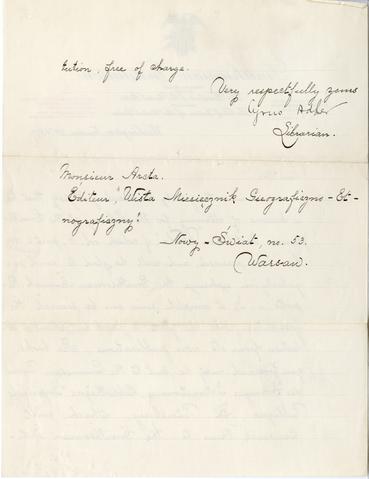 tution, free of charge.
Very respectfully yours
Cyrus Adler
Librarian.
Monsieur Arcta.
Editeur, "Wisla Miesięcznik Geograficzno-Et-
nograficzny."
Nowy-Świat, no. 53.
Warsaw.